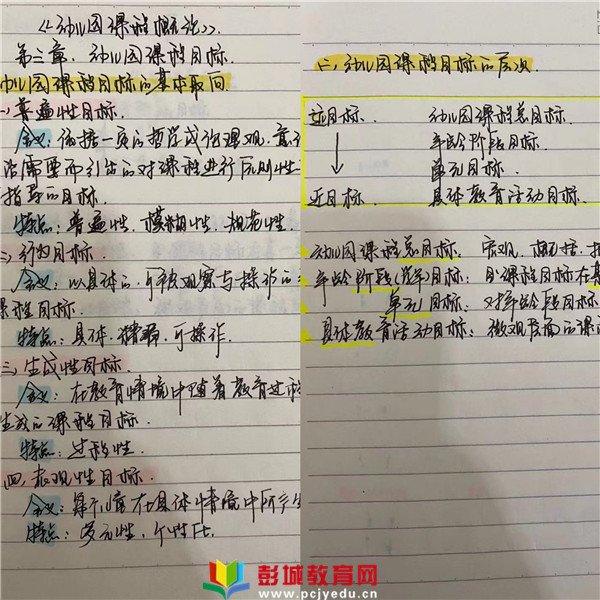 《幼儿园课程概论》.
第三章. 幼儿园课程目标.
幼儿园课程目标的基本取向
一)普遍性目标.
含义: 依据一定的哲学或伦理观、意识
治需要而引出的对课程进行原则性
指导的目标
特点: 普遍性、模糊性、规范性.
二)行为目标.
含义: 以具体的、可被观察与操作的
课程目标.
特点: 具体、精确、可操作.
三.生成性目标.
含义: 在教育情境中随着教育过程
生成的课程目标.
特点: 过程性
四.表现性目标.
含义: 每个儿童在具体情境中所产生
特点: 多元性、个性化.
二、幼儿园课程目标的层次.
远目标. 幼儿园课程总目标.
年龄阶段目标.
单元目标.
近目标. 具体教育活动目标.
幼儿园课程总目标: 宏观、概括、
年龄阶段(学年)目标: 课程目标在
单元目标: 对年龄段目标
具体教育活动目标: 微观层面的课
彭城教育网
www.pcjyedu.cn